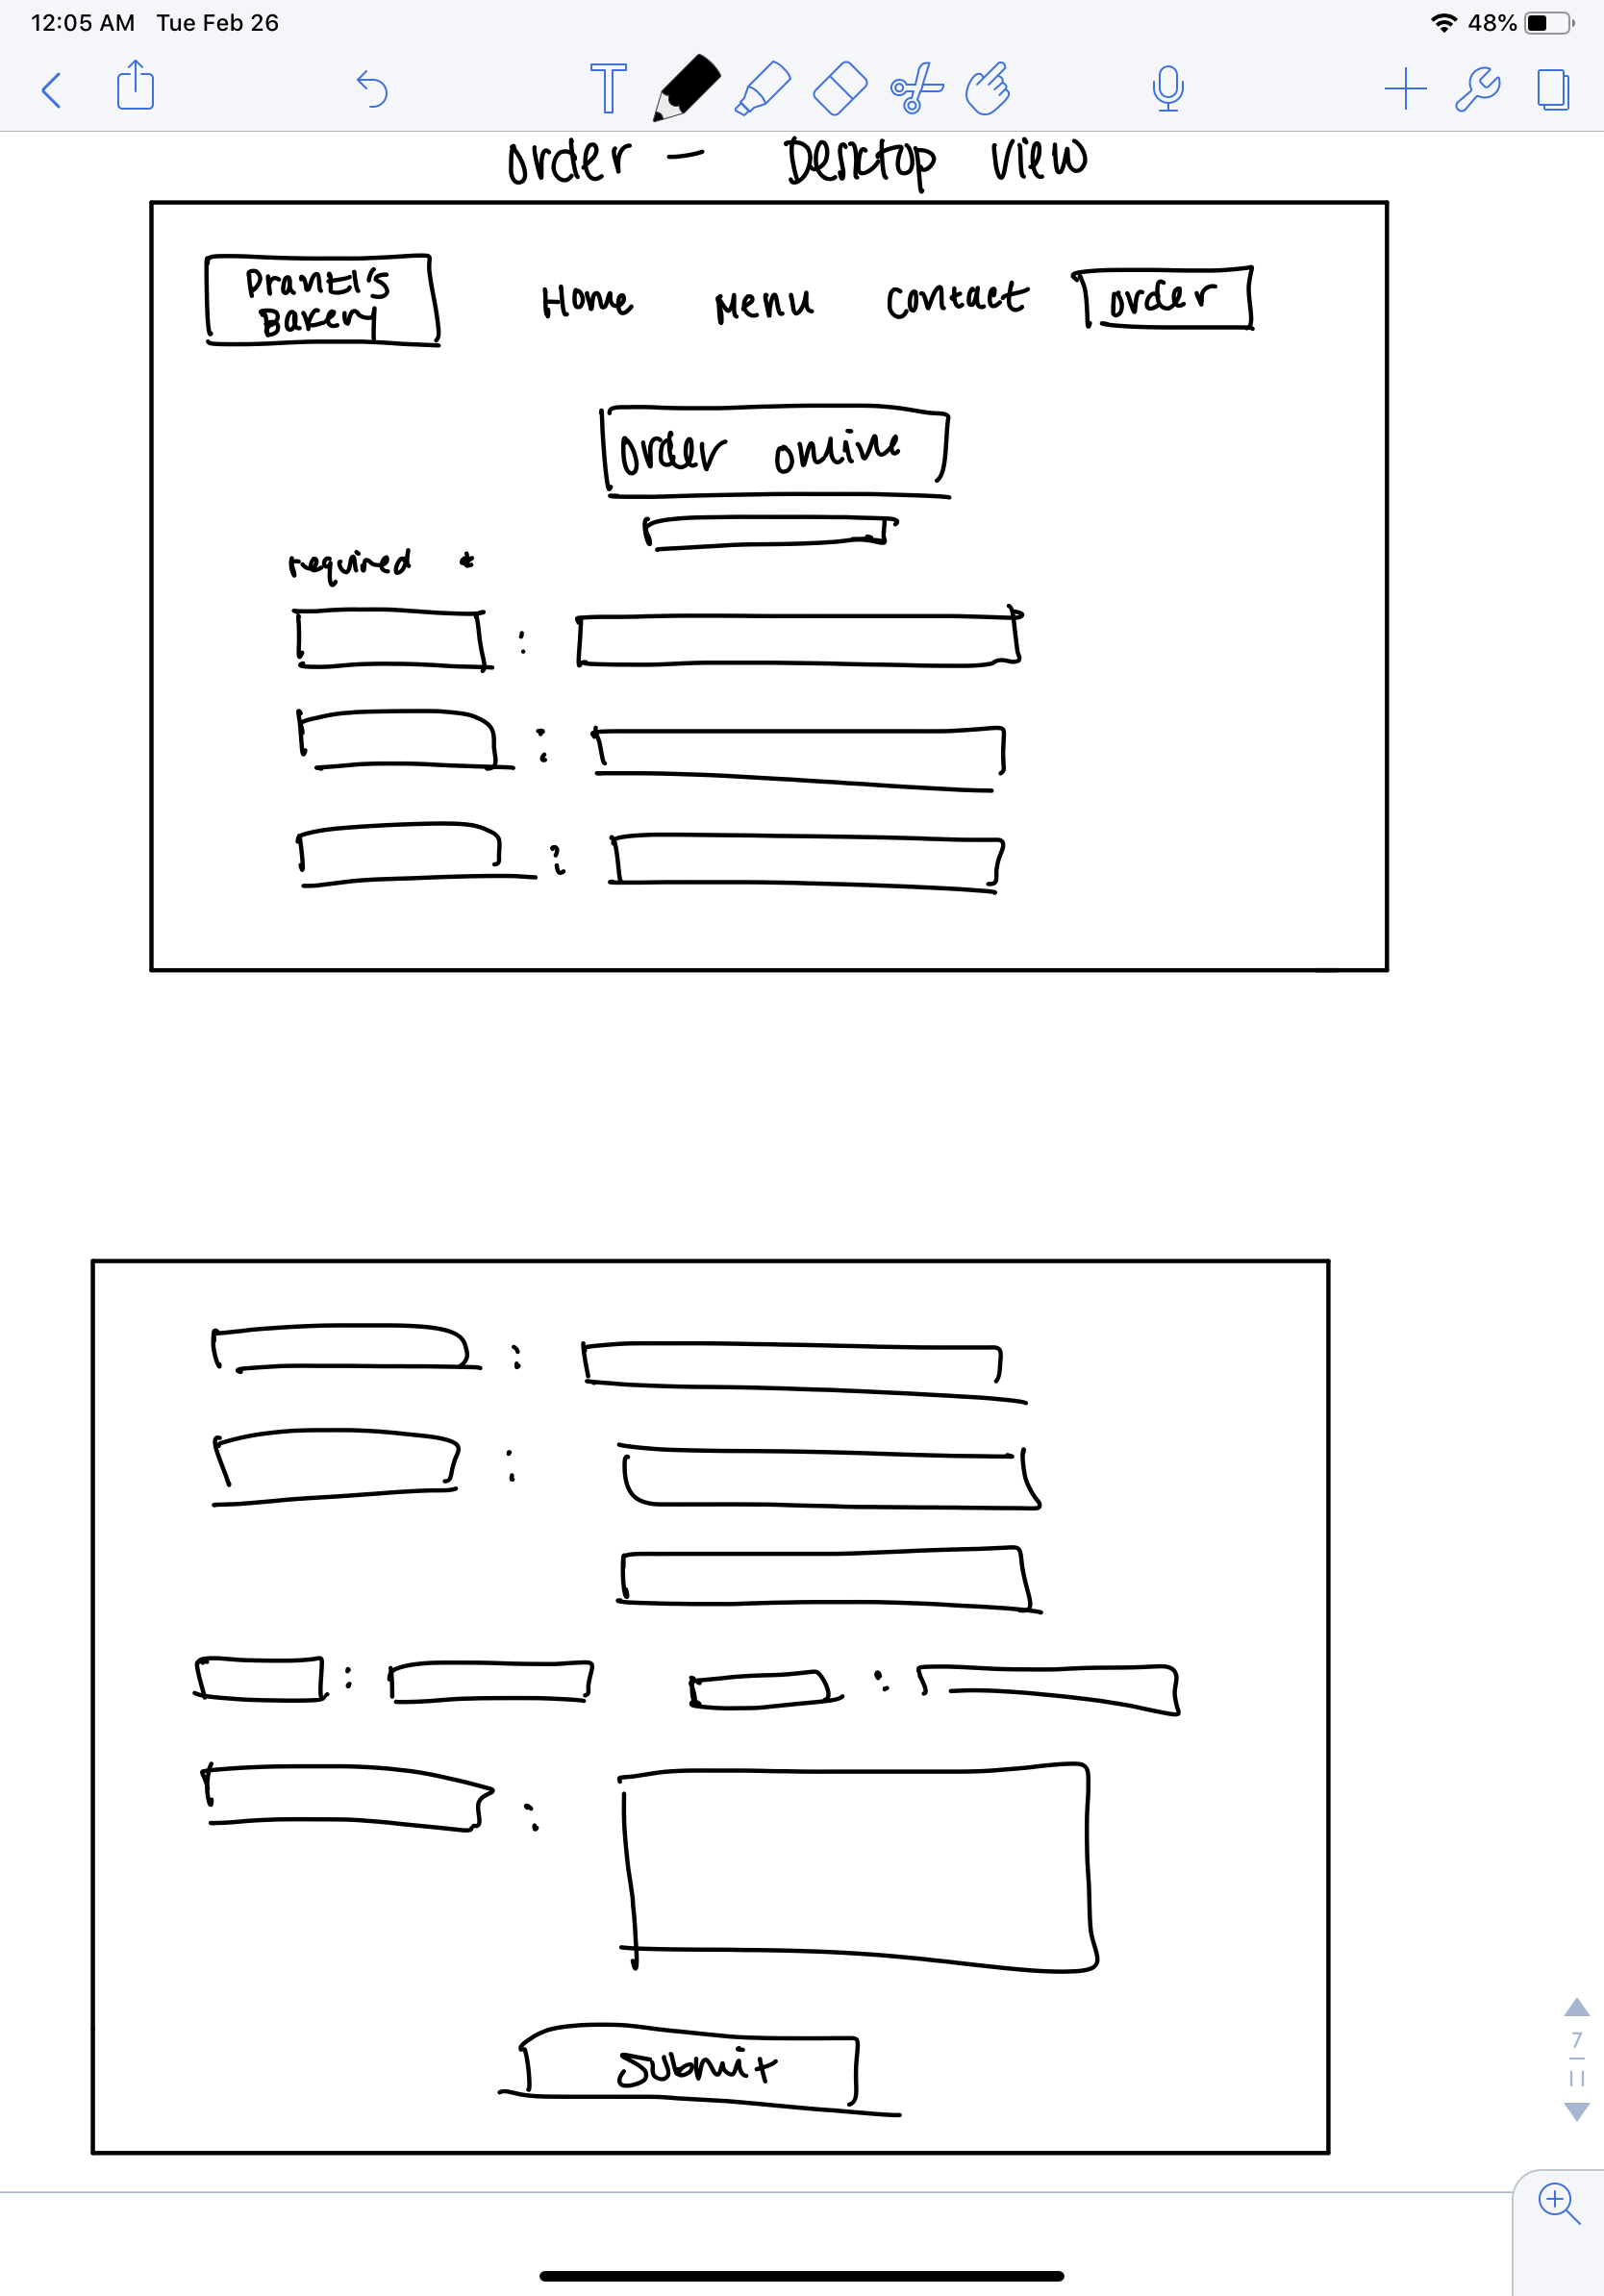 12:05 AM Tue Feb 26 48%
T
order - Desktop View
Prantl's
Bakery
Home Menu Contact order
order online
required *
:
:
:
:
:
: :
:
Submit
7
11